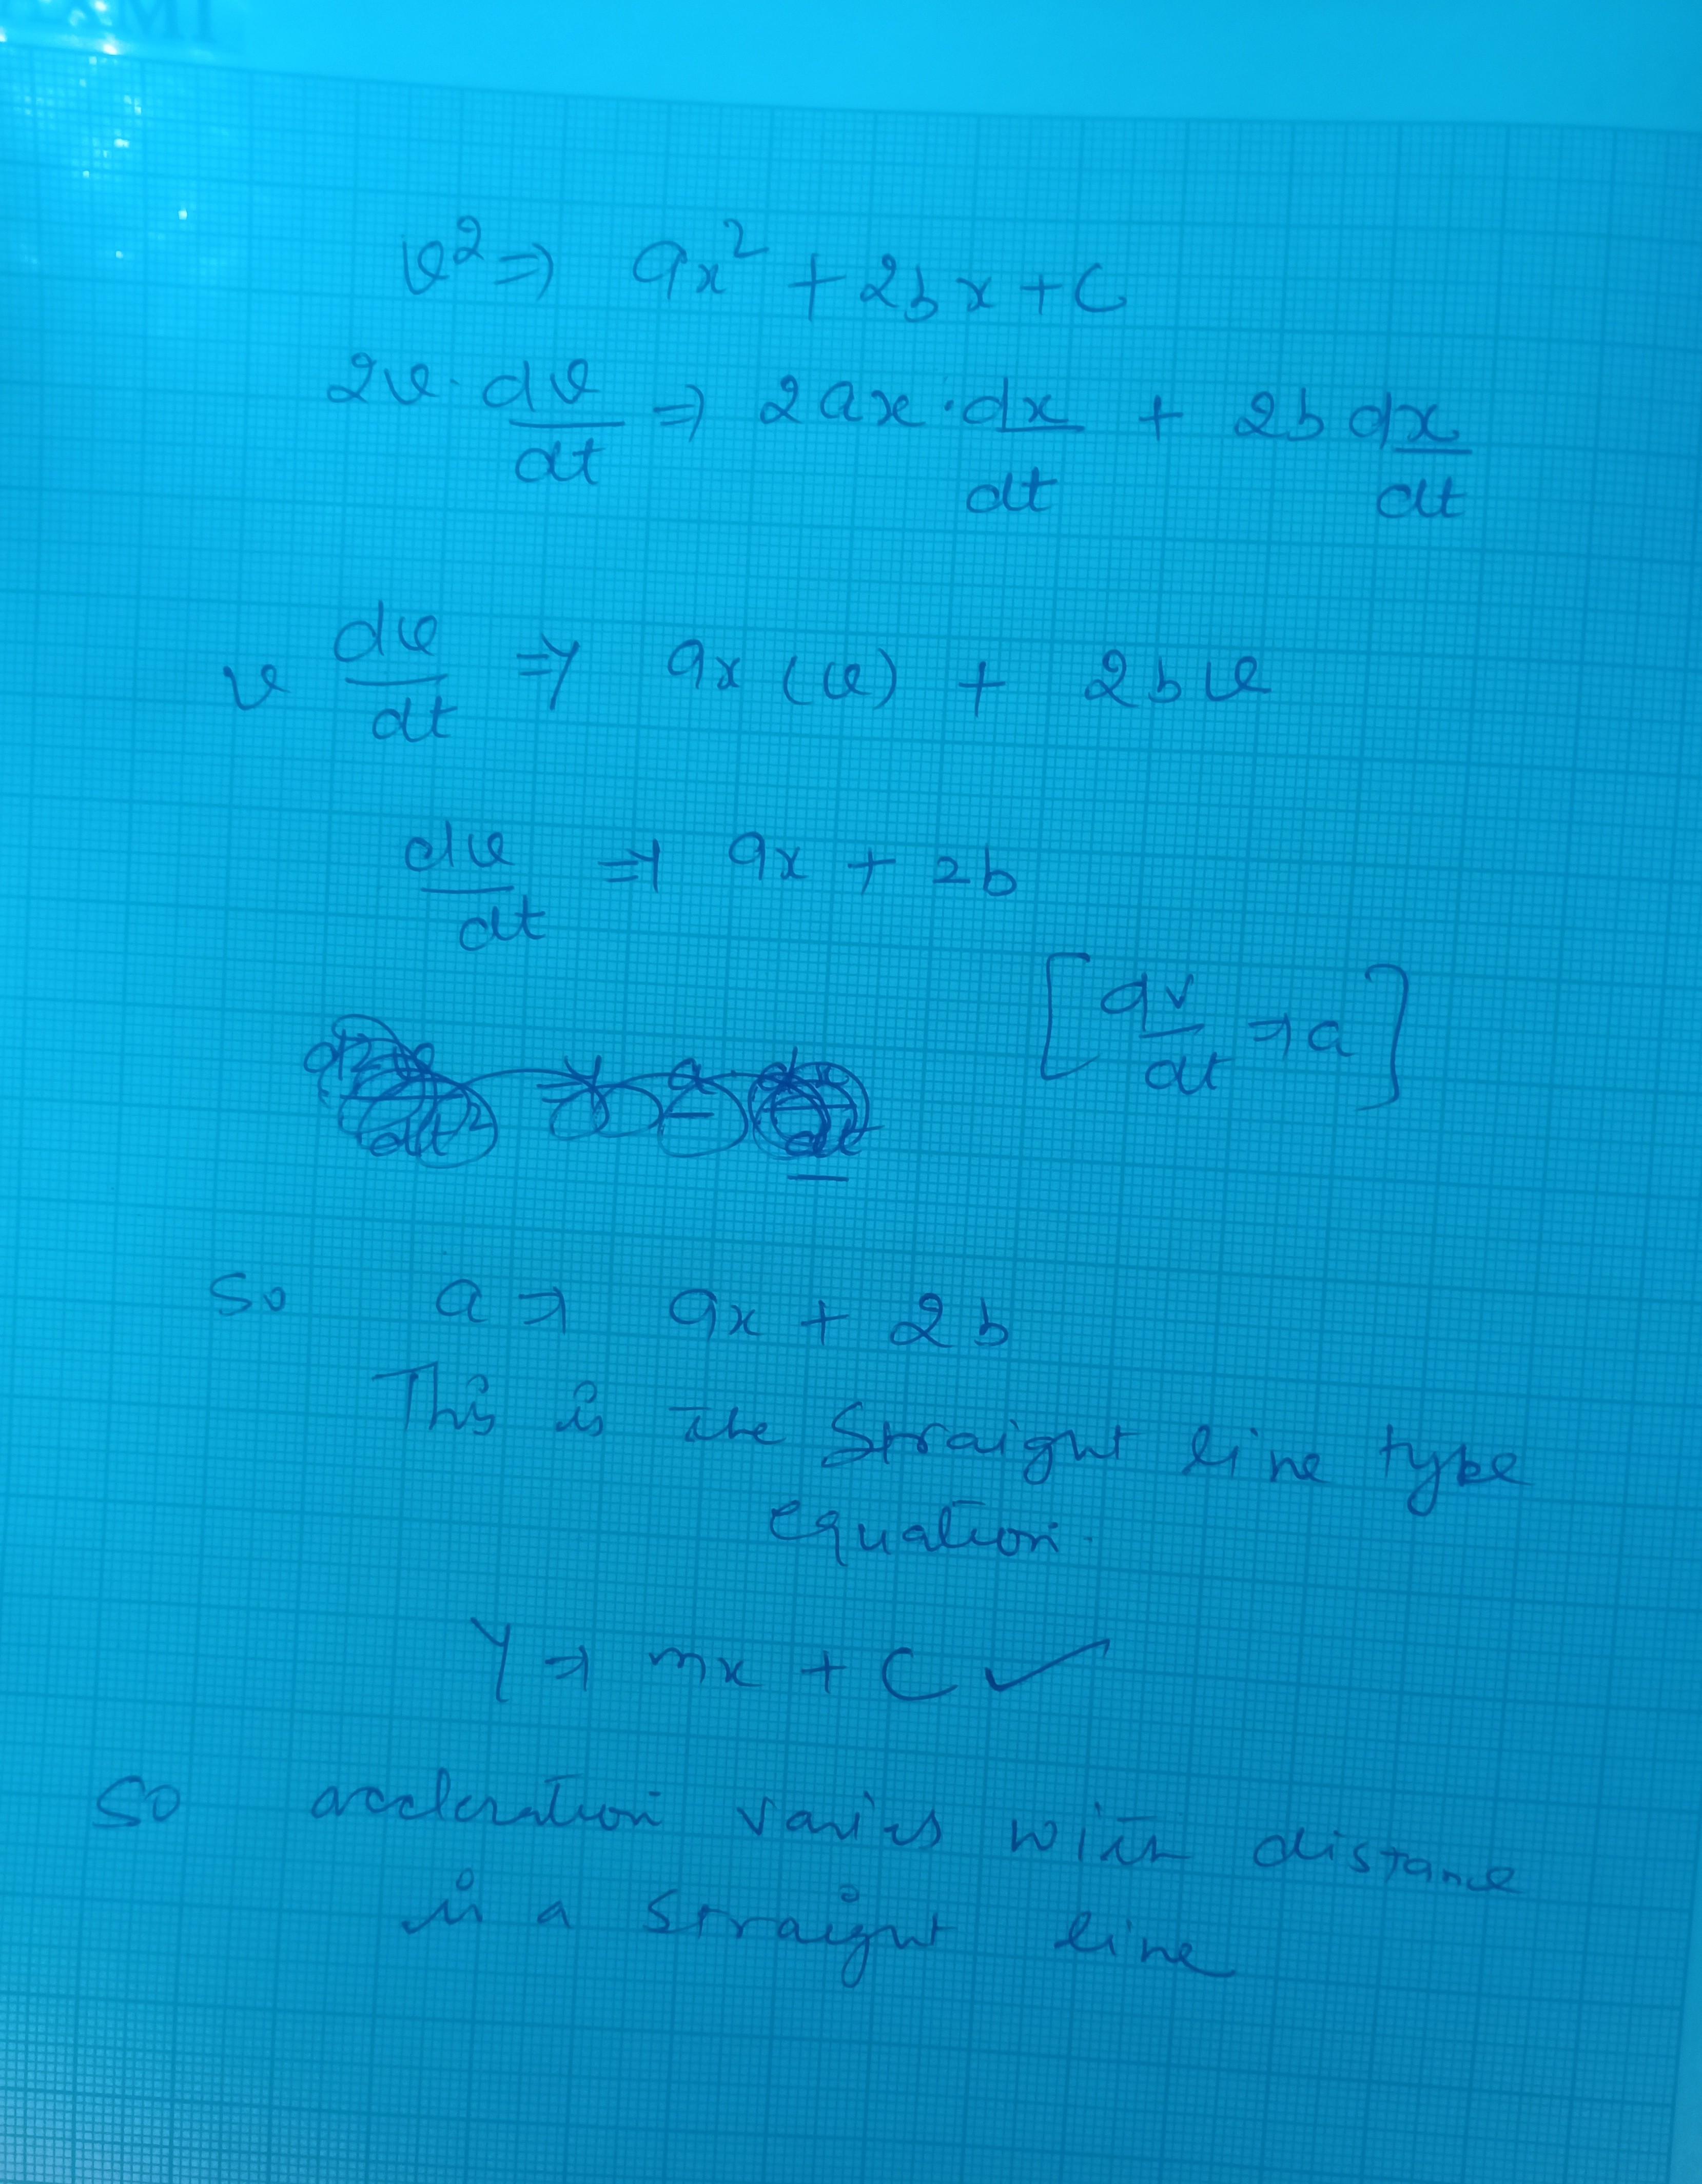 v² ⇒ ax² + 2bx + C
2v · dv/dt ⇒ 2ax · dx/dt + 2b dx/dt
v dv/dt ⇒ ax (v) + 2bv
dv/dt ⇒ ax + 2b
[dv/dt ⇒ a]
So a ⇒ ax + 2b
This is the Straight line type
equation.
Y ⇒ mx + C ✓
So accleration varies with distance
is a straight line